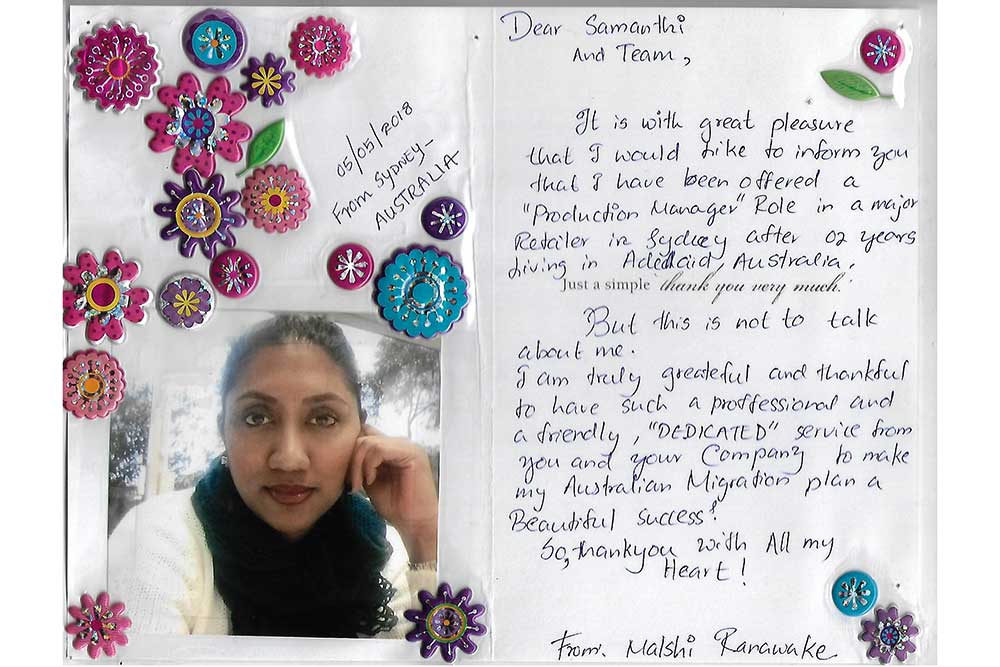 05/05/2018
From SYDNEY-
AUSTRALIA-
Dear Samanthi
And Team,
It is with great pleasure
that I would like to inform you
that I have been offered a
"Production Manager" Role in a major
Retailer in Sydney after 02 years
living in Adelaid, Australia.
Just a simple thank you very much.
But this is not to talk
about me.
I am truly greateful and thankful
to have such a proffessional and
a friendly, "DEDICATED" service from
you and your Company to make
my Australian Migration plan a
Beautiful success!
So, thankyou with All my
Heart!
From. Malshi Ranawake